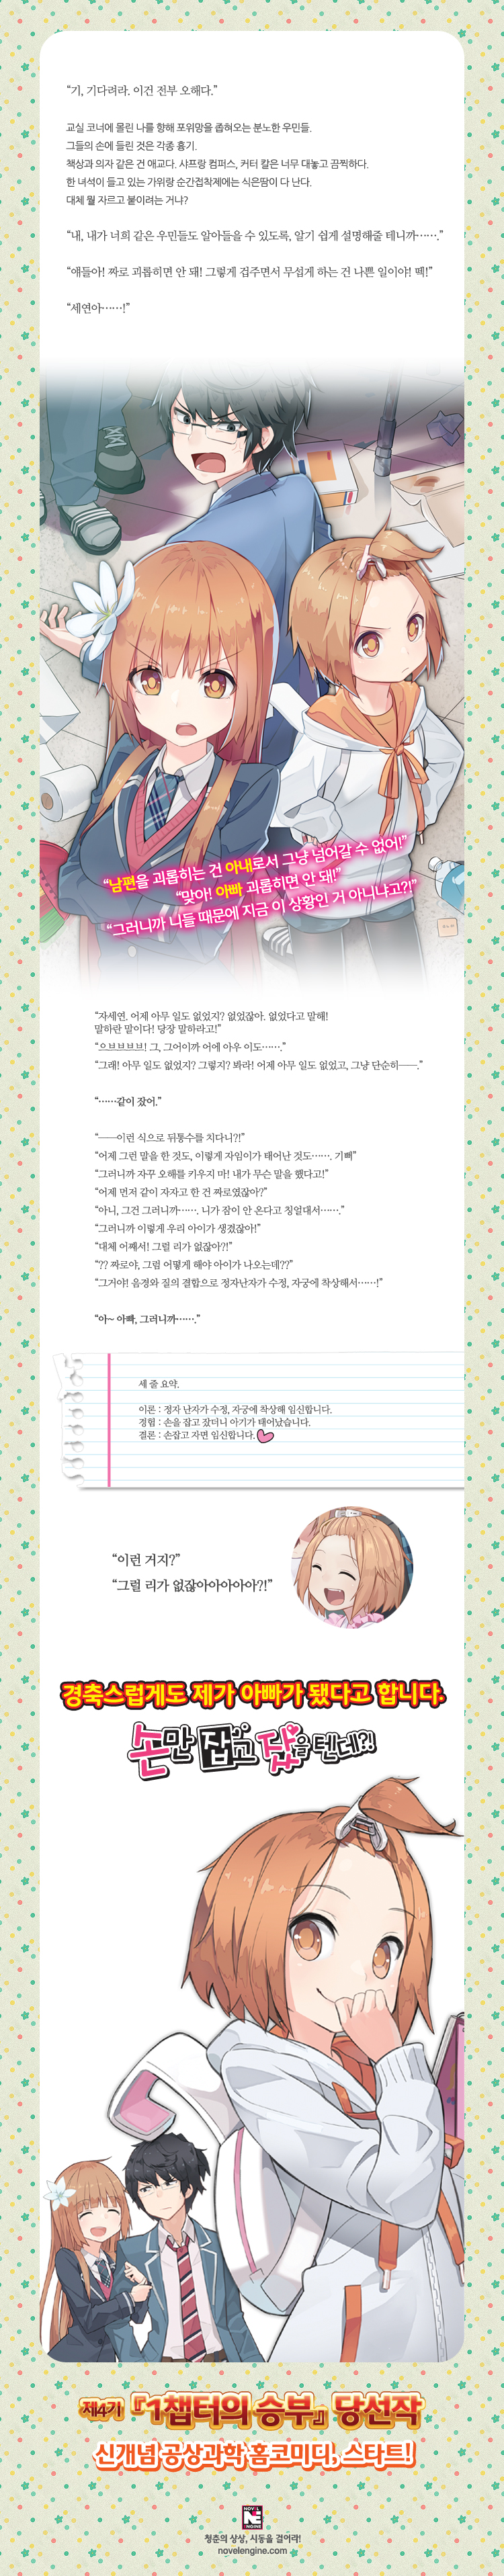 “기, 기다려라. 이건 전부 오해다.”
교실 코너에 몰린 나를 향해 포위망을 좁혀오는 분노한 우민들.
그들의 손에 들린 것은 각종 흉기.
책상과 의자 같은 건 애교다. 샤프랑 컴퍼스, 커터 칼은 너무 대놓고 끔찍하다.
한 녀석이 들고 있는 가위랑 순간접착제에는 식은땀이 다 난다.
대체 뭘 자르고 붙이려는 거냐?
“내, 내가 너희 같은 우민들도 알아들을 수 있도록, 알기 쉽게 설명해줄 테니까…….”
“얘들아! 짜로 괴롭히면 안 돼! 그렇게 겁주면서 무섭게 하는 건 나쁜 일이야! 떽!”
“세연아……!”
“남편을 괴롭히는 건 아내로서 그냥 넘어갈 수 없어!”
“맞아! 아빠 괴롭히면 안 돼!”
“그러니까 니들 때문에 지금 이 상황인 거 아니냐고?!”
“자세연. 어제 아무 일도 없었지? 없었잖아. 없었다고 말해!
말하란 말이다! 당장 말하라고!”
“으브브브브! 그, 그어이까 어에 아우 이도…….”
“그래! 아무 일도 없었지? 그렇지? 봐라! 어제 아무 일도 없었고, 그냥 단순히──.”
“……같이 잤어.”
“──이런 식으로 뒤통수를 치다니?!”
“어제 그런 말을 한 것도, 이렇게 자임이가 태어난 것도……. 기뻐”
“그러니까 자꾸 오해를 키우지 마! 내가 무슨 말을 했다고!”
“어제 먼저 같이 자자고 한 건 짜로였잖아?”
“아니, 그건 그러니까……. 니가 잠이 안 온다고 칭얼대서…….”
“그러니까 이렇게 우리 아이가 생겼잖아!”
“대체 어째서! 그럴 리가 없잖아?!”
“?? 짜로야, 그럼 어떻게 해야 아이가 나오는데??”
“그거야! 음경와 질의 결합으로 정자난자가 수정, 자궁에 착상해서……!”
“아~ 아빠, 그러니까…….”
세 줄 요약.
이론 : 정자 난자가 수정, 자궁에 착상해 임신합니다.
경험 : 손을 잡고 잤더니 아기가 태어났습니다.
결론 : 손잡고 자면 임신합니다.
“이런 거지?”
“그럴 리가 없잖아아아아아?!”
경축스럽게도 제가 아빠가 됐다고 합니다.
손만 잡고 잤을 텐데?!
제4기 『1챕터의 승부』 당선작
신개념 공상과학 홈코미디, 스타트!
NOVEL
NE
ENGINE
청춘의 상상, 시동을 걸어라!
novelengine.com